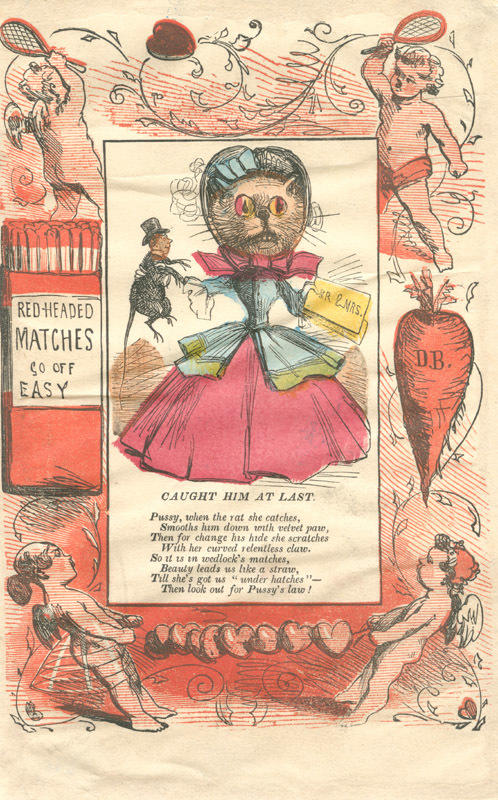 RED-HEADED
MATCHES
GO OFF
EASY
MR & MRS.
D.B.
CAUGHT HIM AT LAST.
Pussy, when the rat she catches,
Smooths him down with velvet paw,
Then for change his hide she scratches
With her curved relentless claw.
So it is in wedlock's matches,
Beauty leads us like a straw,
Till she's got us "under hatches"—
Then look out for Pussy's law!